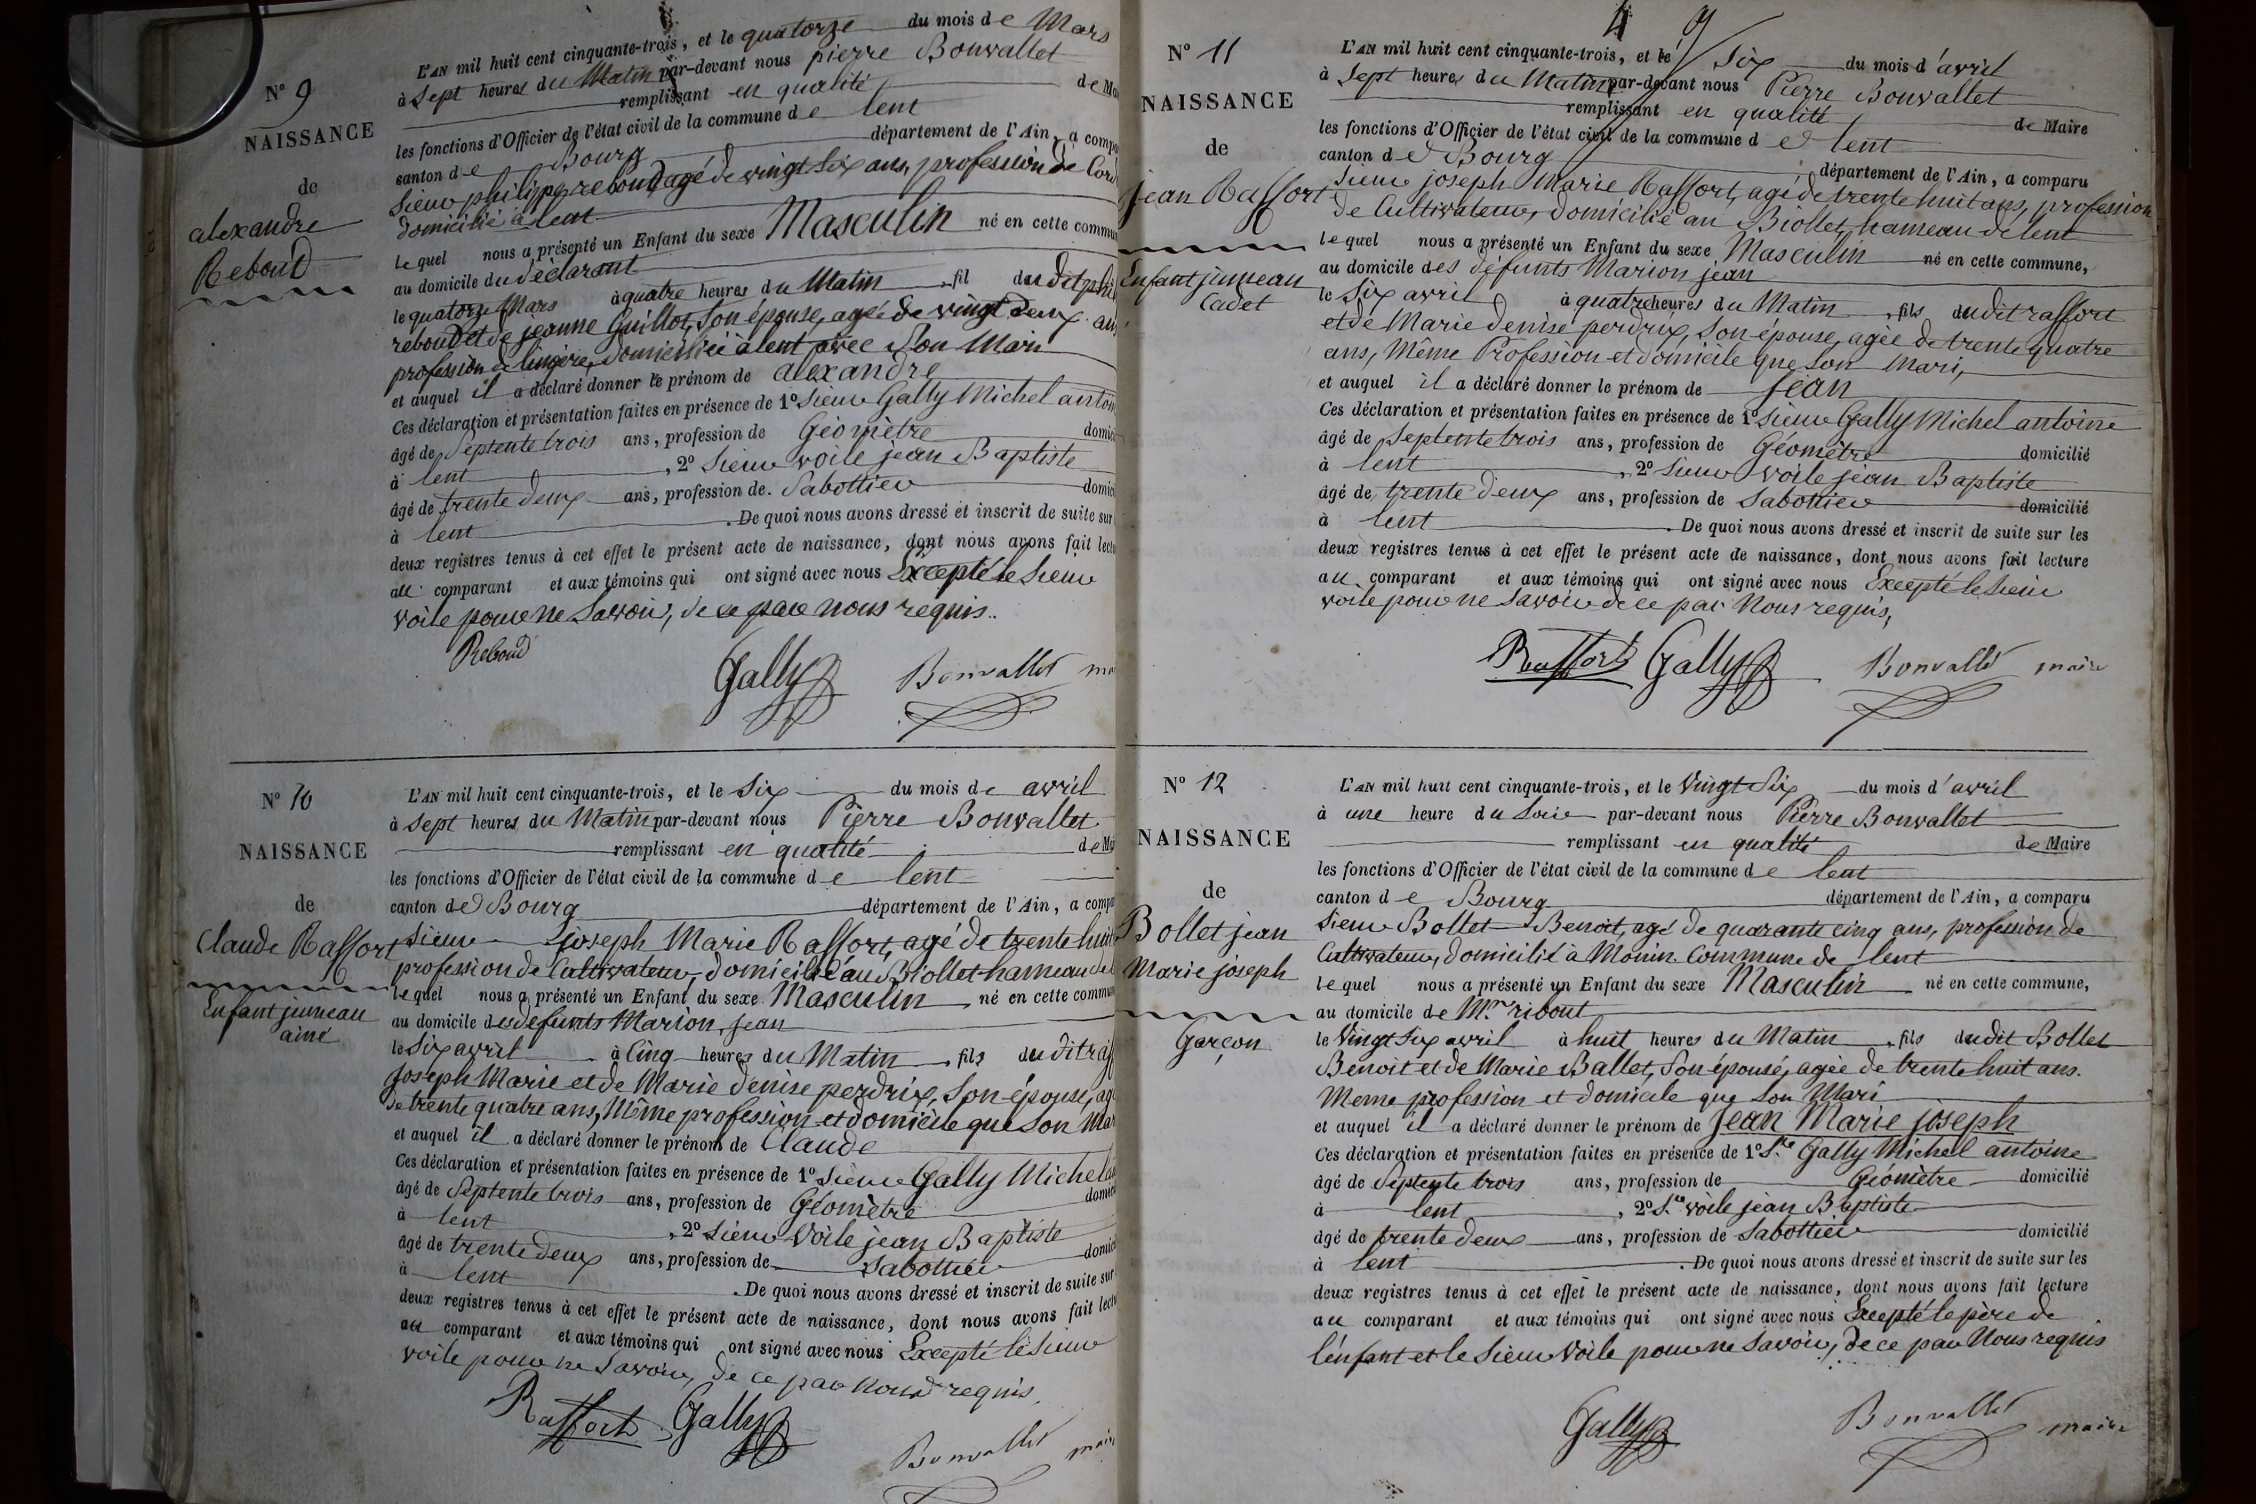 N° 9
NAISSANCE
de
alexandre
Reboud
L'AN mil huit cent cinquante-trois, et le quatorze du mois de Mars
à Sept heures du Matin par-devant nous pierre Bonvallet
remplissant en qualité de
les fonctions d'Officier de l'état civil de la commune de lent
canton de Bourg département de l'Ain, a
Sieur philippe reboud agé de vingt Six ans, profession de
domicilié à lent
lequel nous a présenté un Enfant du sexe Masculin né en cette
au domicile du déclarant
le quatorze Mars à quatre heures du Matin, fil dudit
reboud et de jeanne Guillot, Son épouse, agée de vingt deux
profession de lingère, domiciliée à lent avec Son Mari
et auquel il a déclaré donner le prénom de alexandre
Ces déclaration et présentation faites en présence de 1° Sieur Gally Michel
âgé de Septente trois ans, profession de Géomètre
à lent, 2° Sieur voile jean Baptiste
âgé de trente deux ans, profession de Sabottier
à lent. De quoi nous avons dressé et inscrit de suite sur
deux registres tenus à cet effet le présent acte de naissance, dont nous avons fait
au comparant et aux témoins qui ont signé avec nous Excepté le Sieur
voile pour ne Savoir, de ce par nous requis.
Reboud Gally Bonvallet
N° 10
NAISSANCE
de
Claude Raffort
Enfant jumeau
ainé
L'AN mil huit cent cinquante-trois, et le Six du mois de avril
à sept heures du Matin par-devant nous Pierre Bonvallet
remplissant en qualité de
les fonctions d'Officier de l'état civil de la commune de lent
canton de Bourg département de l'Ain, a
Sieur joseph Marie Raffort, agé de trente
profession de Cultivateur, domicilié au Biollet hameau
lequel nous a présenté un Enfant du sexe Masculin né en cette
au domicile des défunts Marion, jean
le Six avril à Cinq heures du Matin, fils du dit
joseph Marie et de Marie denise perdrix, Son épouse,
de trente quatre ans, Même profession et domicile que Son
et auquel il a déclaré donner le prénom de Claude
Ces déclaration et présentation faites en présence de 1° Sieur Gally Michel
âgé de Septente trois ans, profession de Géomètre
à lent, 2° Sieur Voile jean Baptiste
âgé de trente deux ans, profession de Sabottier
à lent. De quoi nous avons dressé et inscrit de suite sur
deux registres tenus à cet effet le présent acte de naissance, dont nous avons fait
au comparant et aux témoins qui ont signé avec nous Excepté le Sieur
voile pour ne Savoir, de ce par nous requis,
Raffort Gally Bonvallet
4
N° 11
NAISSANCE
de
jean Raffort
Enfant jumeau
Cadet
L'AN mil huit cent cinquante-trois, et le Six du mois d'avril
à Sept heures du Matin par-devant nous Pierre Bonvallet
remplissant en qualité de Maire
les fonctions d'Officier de l'état civil de la commune de lent
canton de Bourg département de l'Ain, a comparu
Sieur joseph Marie Raffort, agé de trente huit ans, profession
de Cultivateur, domicilié au Biollet, hameau de lent
lequel nous a présenté un Enfant du sexe Masculin né en cette commune,
au domicile des défunts Marion jean
le Six avril à quatre heures du Matin, fils dudit raffort
et de Marie denise perdrix, Son épouse, agée de trente quatre
ans, Même Profession et domicile que Son Mari,
et auquel il a déclaré donner le prénom de jean
Ces déclaration et présentation faites en présence de 1° Sieur Gally Michel antoine
âgé de Septente trois ans, profession de Géomètre domicilié
à lent, 2° Sieur Voile jean Baptiste
âgé de trente deux ans, profession de Sabottier domicilié
à lent. De quoi nous avons dressé et inscrit de suite sur les
deux registres tenus à cet effet le présent acte de naissance, dont nous avons fait lecture
au comparant et aux témoins qui ont signé avec nous Excepté le Sieur
voile pour ne Savoir de ce par Nous requis,
Raffort Gally Bonvallet maire
N° 12
NAISSANCE
de
Bollet jean
Marie joseph
Garçon
L'AN mil huit cent cinquante-trois, et le Vingt Six du mois d'avril
à une heure du Soir par-devant nous Pierre Bonvallet
remplissant en qualité de Maire
les fonctions d'Officier de l'état civil de la commune de lent
canton de Bourg département de l'Ain, a comparu
Sieur Bollet Benoit, agé de quarante cinq ans, profession de
Cultivateur, domicilié à Monin Commune de lent
lequel nous a présenté un Enfant du sexe Masculin né en cette commune,
au domicile de Mr ribout
le Vingt Six avril à huit heures du Matin, fils dudit Bollet
Benoit et de Marie Ballet, Son épouse, agée de trente huit ans.
Meme profession et domicile que Son Mari
et auquel il a déclaré donner le prénom de Jean Marie joseph
Ces déclaration et présentation faites en présence de 1° Sr Gally Michel antoine
âgé de Septente trois ans, profession de Géomètre domicilié
à lent, 2° Sr voile jean Baptiste
âgé de trente deux ans, profession de Sabottier domicilié
à lent. De quoi nous avons dressé et inscrit de suite sur les
deux registres tenus à cet effet le présent acte de naissance, dont nous avons fait lecture
au comparant et aux témoins qui ont signé avec nous Excepté le père de
l'énfant et le Sieur Voile pour ne Savoir, de ce par Nous requis
Gally Bonvallet maire